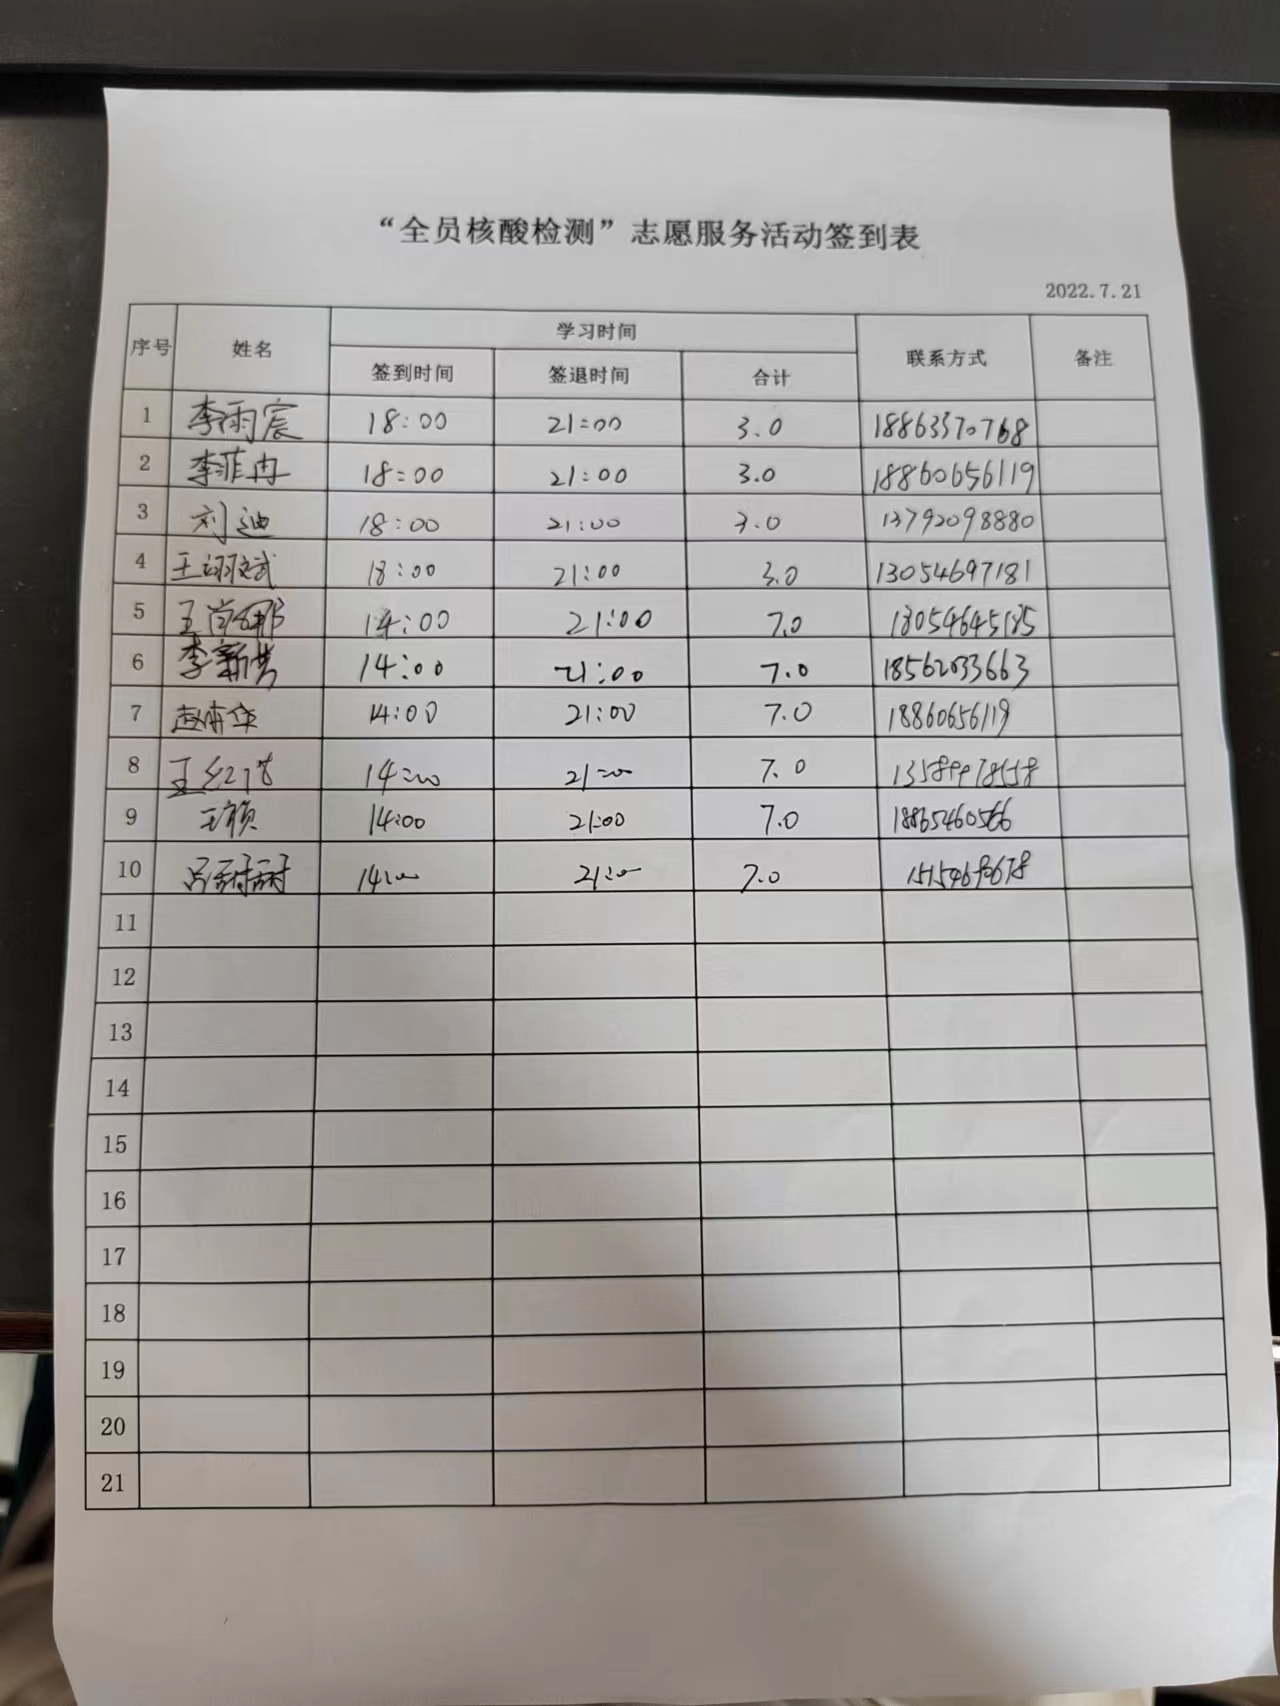 “全员核酸检测”志愿服务活动签到表
2022.7.21
序号 姓名 学习时间 联系方式 备注
签到时间 签退时间 合计
1 李雨宸 18:00 21:00 3.0 18863370768
2 李菲冉 18:00 21:00 3.0 18860656119
3 刘迪 18:00 21:00 3.0 13792098880
4 王翊斌 18:00 21:00 3.0 13054697181
5 14:00 21:00 7.0 13054645185
6 14:00 21:00 7.0 18562033663
7 14:00 21:00 7.0 18860656119
8 14:00 21:00 7.0
9 王颖 14:00 21:00 7.0 18865460566
10 吕甜甜 14:00 21:00 7.0
11
12
13
14
15
16
17
18
19
20
21